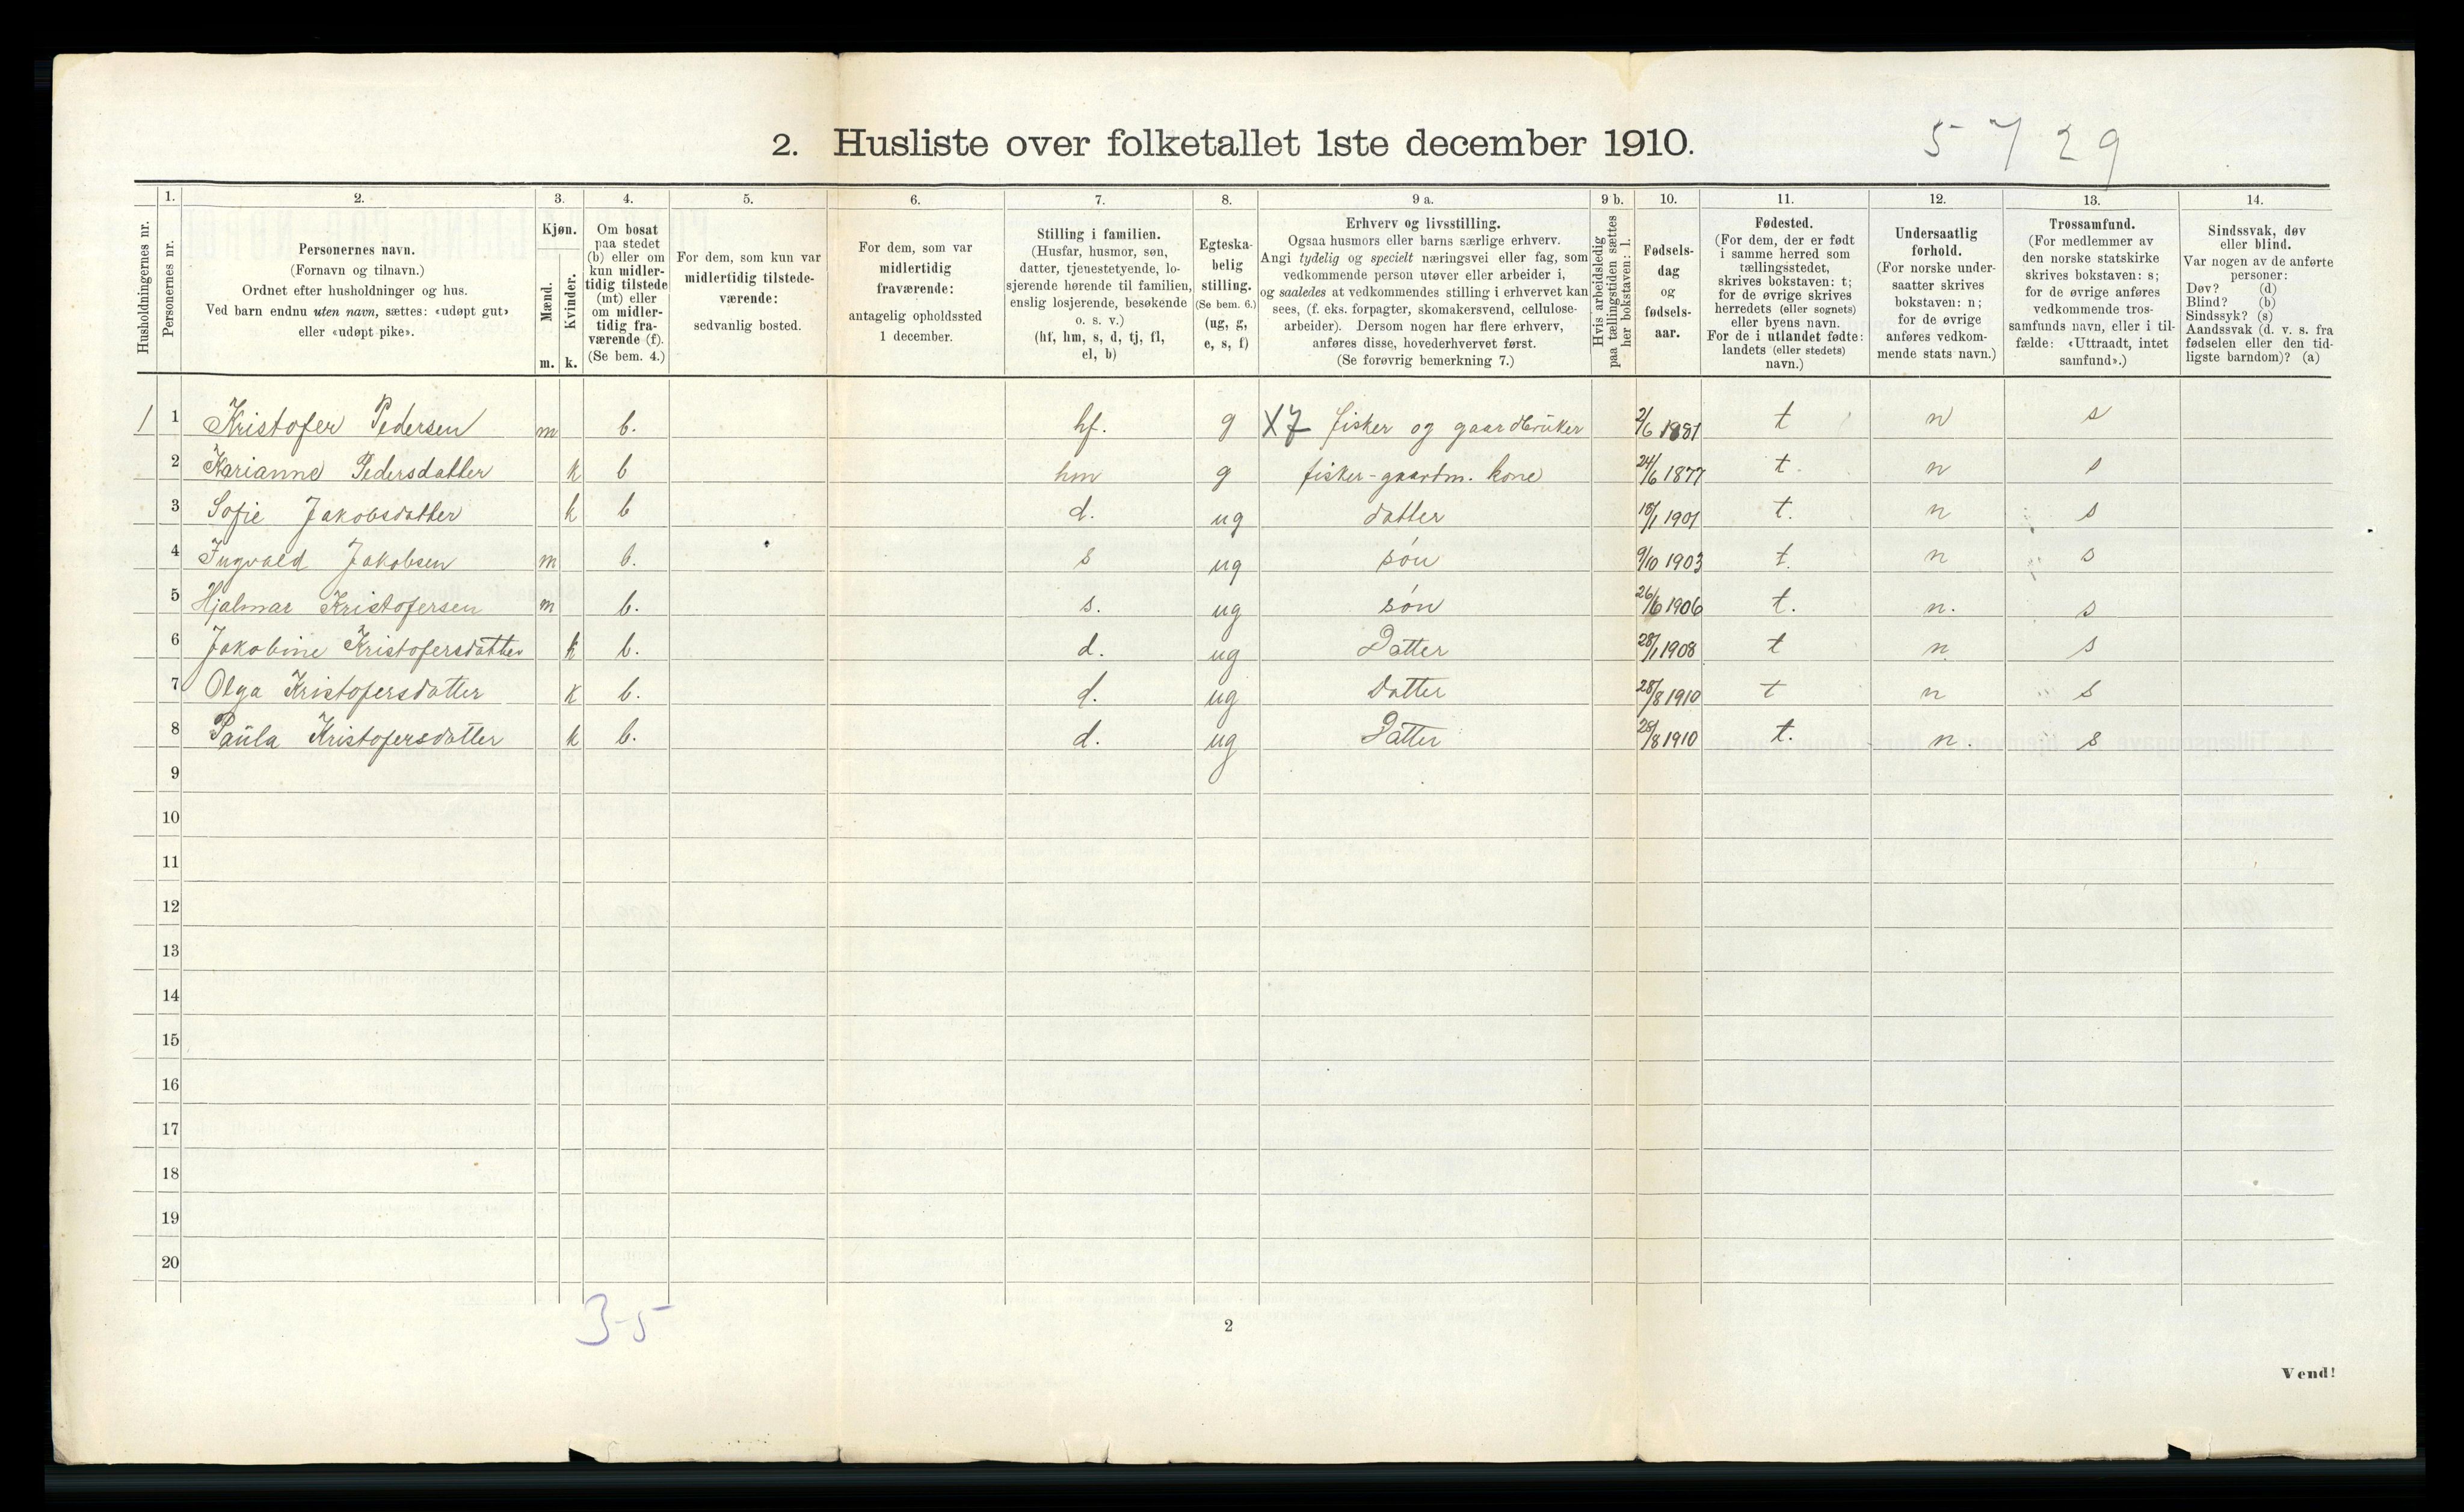 2. Husliste over folketallet 1ste december 1910.
5729
Husholdningernes nr.
1.
Personernes nr.
2.
Personernes navn.
(Fornavn og tilnavn.)
Ordnet efter husholdninger og hus.
Ved barn endnu uten navn, sættes: «udøpt gut»
eller «udøpt pike».
3.
Kjøn.
Mænd.
Kvinder.
m. k.
4.
Om bosat
paa stedet
(b) eller om
kun midler-
tidig tilstede
(mt) eller
om midler-
tidig fra-
værende (f).
(Se bem. 4.)
5.
For dem, som kun var
midlertidig tilstede-
værende:
sedvanlig bosted.
6.
For dem, som var
midlertidig
fraværende:
antagelig opholdssted
1 december.
7.
Stilling i familien.
(Husfar, husmor, søn,
datter, tjenestetyende, lo-
sjerende hørende til familien,
enslig losjerende, besøkende
o. s. v.)
(hf, hm, s, d, tj, fl,
el, b)
8.
Egteska-
belig
stilling.
(Se bem. 6.)
(ug, g,
e, s, f)
9 a.
Erhverv og livsstilling.
Ogsaa husmors eller barns særlige erhverv.
Angi tydelig og specielt næringsvei eller fag, som
vedkommende person utøver eller arbeider i,
og saaledes at vedkommendes stilling i erhvervet kan
sees, (f. eks. forpagter, skomakersvend, cellulose-
arbeider). Dersom nogen har flere erhverv,
anføres disse, hovederhvervet først.
(Se forøvrig bemerkning 7.)
9 b.
Hvis arbeidsledig
paa tællingstiden sættes
her bokstaven: l.
10.
Fødsels-
dag
og
fødsels-
aar.
11.
Fødested.
(For dem, der er født
i samme herred som
tællingsstedet,
skrives bokstaven: t;
for de øvrige skrives
herredets (eller sognets)
eller byens navn.
For de i utlandet fødte:
landets (eller stedets)
navn.)
12.
Undersaatlig
forhold.
(For norske under-
saatter skrives
bokstaven: n;
for de øvrige
anføres vedkom-
mende stats navn.)
13.
Trossamfund.
(For medlemmer av
den norske statskirke
skrives bokstaven: s;
for de øvrige anføres
vedkommende tros-
samfunds navn, eller i til-
fælde: «Uttraadt, intet
samfund».)
14.
Sindssvak, døv
eller blind.
Var nogen av de anførte
personer:
Døv? (d)
Blind? (b)
Sindssyk? (s)
Aandssvak (d. v. s. fra
fødselen eller den tid-
ligste barndom)? (a)
1 1 Kristofer Pedersen m b. hf. g X7 fisker og gaardbruker 2/6 1881 t n s
2 Karianne Pedersdatter k b hm g fisker-gaardm. kone 24/6 1877 t. n s
3 Sofie Jakobsdatter k b d. ug datter 18/1 1901 t. n s
4 Ingvald Jakobsen m b. s ug søn 9/10 1903 t. n s
5 Hjalmar Kristofersen m b. s. ug søn 26/6 1906 t. n. s
6 Jakobine Kristofersdatter k b. d. ug Datter 28/1 1908 t n. s
7 Olga Kristofersdatter k b. d. ug Datter 28/8 1910 t n s
8 Paula Kristofersdatter k b. d. ug Datter 28/8 1910 t. n. s
9
10
11
12
13
14
15
16
17
18
19
20
3-5
2
Vend!